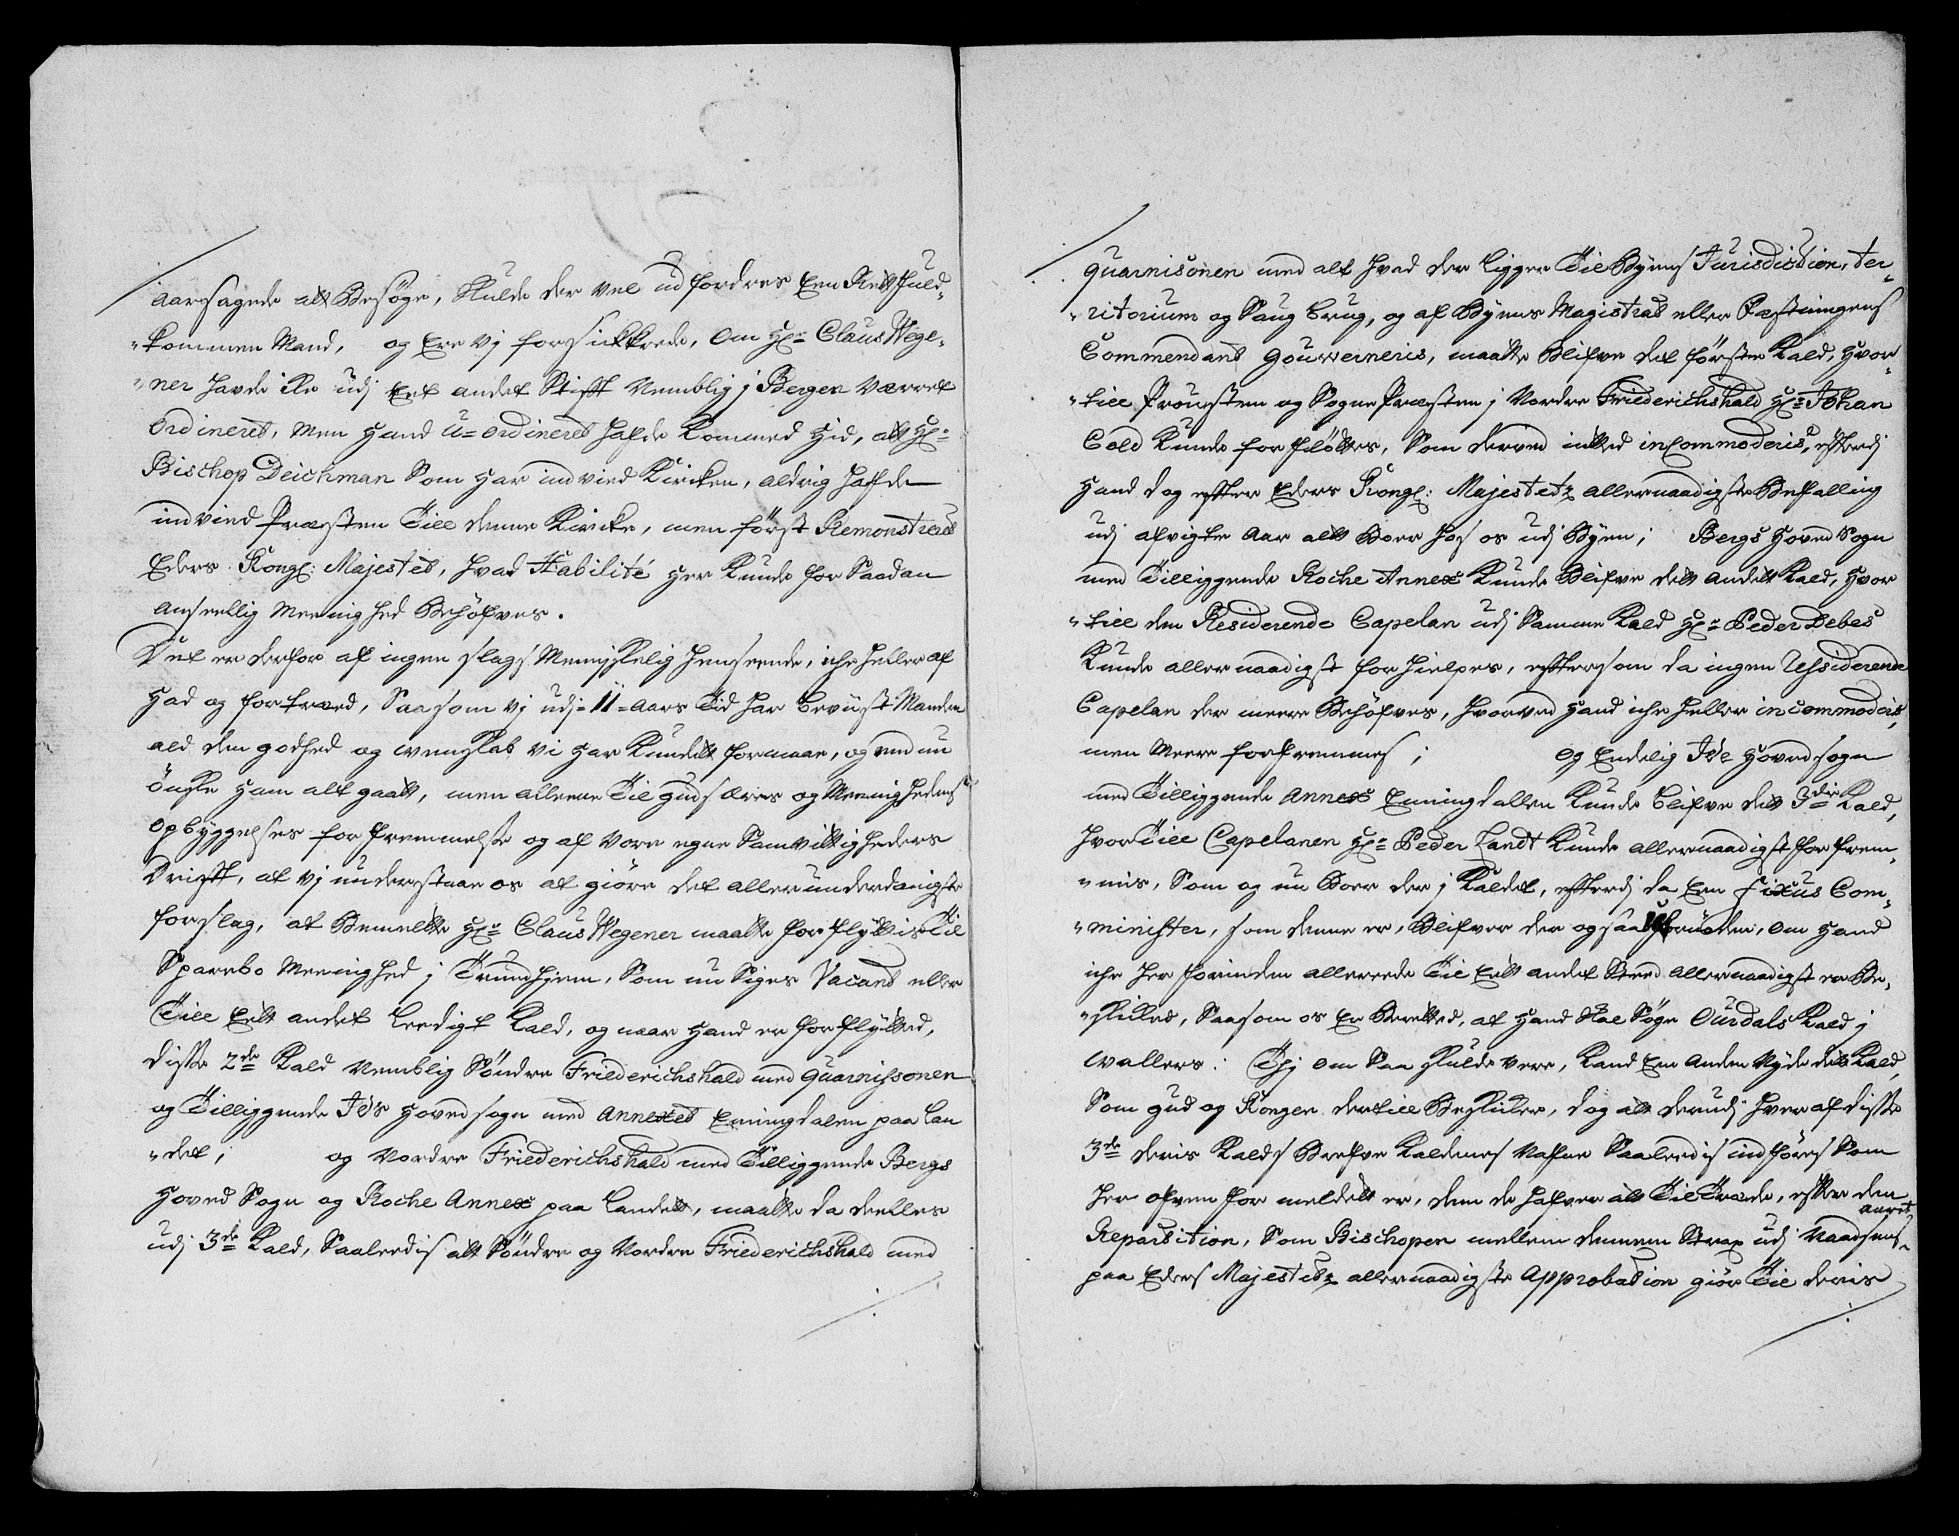 aarsagede att Besøge, Skulde der vel udfordres Een Rett fuld-
"kommen Mand, og Ere vj forsickrede, om Hr: Claus Wege,
"ner havde icke udj Eet andet Stifft Nemblig j Bergen Værret
Ordineret, men Hand U=ordineret hafde kommed hid, att Hr:
Bischop Deichman Som har indvied Kircken, aldrig hafde
indvied Præsten Till denne Kircke, men først Remonstreret
Eders Kongl: Majestet, hvad Habilité her kunde for Saadan
anseelig Meenighed Behøfves.
Det er derfor af ingen slags Menniskelig henseende, iche heller af
had og fortræd, Saasom vj udj 11 aars Tid har beviist Manden
ald den godhed og wenskab vi har kundet formaae, og end nu
ønske ham alt gaatt, men alleene Til guds æres og Meenighedens
opbyggelses forfremmelse og af vore egne Samvittigheders
Drifft, at vj understaae os at giøre det allerunderdanigste
forslag, at Bemeldte Hr: Claus Wegener maatte forflyttis Til
Sparebo Meenighed j Trundhjem, Som nu Siges Vacant eller
Till Eett andet Leedigt Kald, og naar hand er forflytted,
disse 2de Kald Nemblig Søndre Friederichshald med Quarnissonen
og Tilliggende Ids Hovedsogn med Annexet Enningdalen paa Lan
"det, og Nordre Friederichshald med Tilliggende Bergs
Hoved Sogn og Roche Annex paa Landet, maatte da deelles
udj 3de Kald, Saaleedis att Søndre og Nordre Friederichshald med
Quarnisonen med alt hvad der ligger Til Byens Jurisdiction, ter-
"ritorium og Saug brug, og af Byens Magistrat eller Fæstningens
Commendant gouverneris, maatte Blifve det første Kald, hvor-
"till Prousten og Sogne Præsten j Nordre Friederichshald Hr: Johan
Cold kunde forfløttes, Som derved intted incommoderis, efterdj
hand dog efter Eders Kongl: Majestetz allernaadigste Befalling
udj afvigte Aar alt Boer hos os udj Byen; Bergs Hoved Sogn
med Tilliggende Roche Annex kunde Blifve dett andet Kald, hvor
"till den Residerende Capelan udj Samme Kald Hr: Peder Debes
kunde allernaadigst forhielpes, eftersom da ingen Residerende
Capelan der meere Behøfves, hvorved hand iche heller incommoderis,
men Meere forfremmes; og Endelig Ids Hovedsogn
med Tilliggende Annex Enningdallen kunde blifve det 3die Kald,
hvor Till Capelanen Hr: Peder Landt kunde allernaadigst forfrem-
"mis, Som og nu Boer der j Kaldet, efterdj da Een fixus Com-
"minister, som denne er, Blifver der ogsaa, om hand
iche her forinden allereede Til Eett andet Sted allernaadigst er Be-
"skicket, Saasom os Er Berettet, at hand skal Søge Ourdals Kald j
Wallers: Thj om Saa skulde vere, kand Een anden Nyde det Kald,
Som gud og Kongen dertill Beskicker, dog att derudj hver af disse
3de deris Kalds Brefve Kaldenes Nafne Saaleedis indføres Som
her ofven for meldet er, dem de hafver att Til Træde, efter den
Repartition, Som Bischopen mellem dennem Strax udj Naadsens aaret
paa Eders Majestetz allernaadigste Approbation giør Til deris